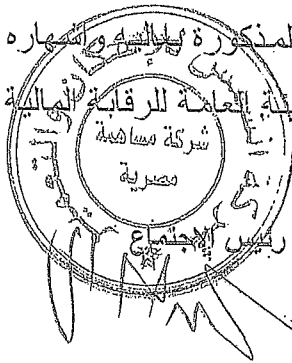 المذكورة بإليه و إشهاره
يئة العامة للرقابة المالية
شركة مساهمة
مصرية
رئيس الإجتماع